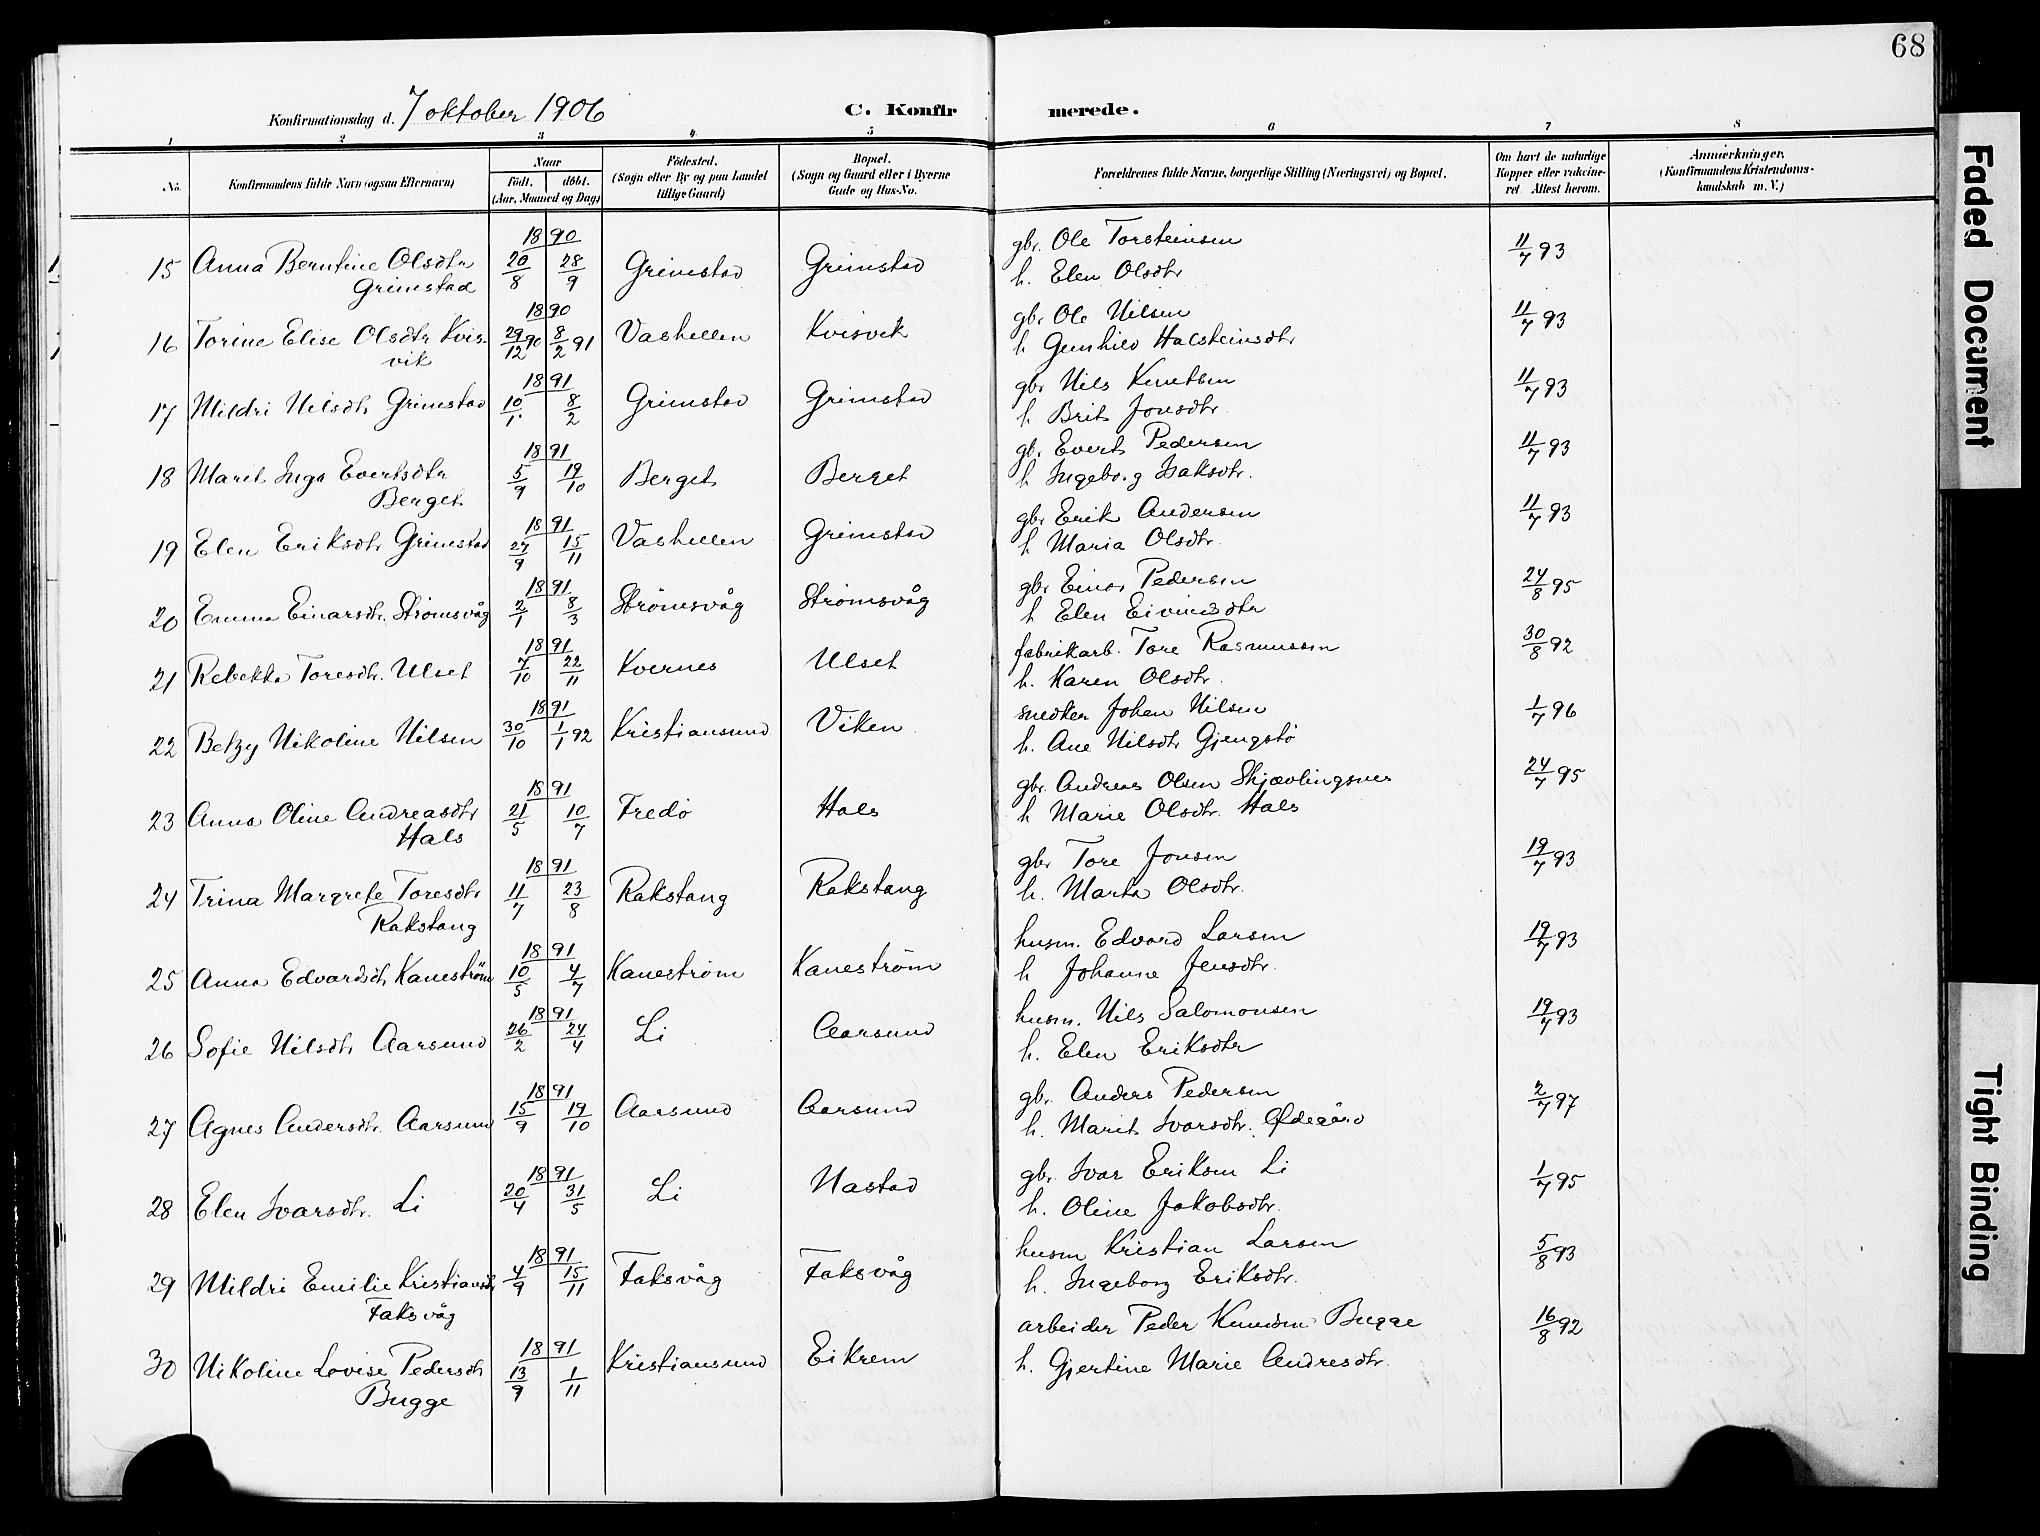 68
Konfirmationsdag d. 7 oktober 1906 C. Konfir merede.
1 2 3 4 5 6 7 8
No. Konfirmandens fulde Navn (ogsaa Efternavn) Naar Födt. döbt. (Aar, Maaned og Dag) Födested. (Sogn eller By og paa Landet tillige Gaard) Bopæl. (Sogn og Gaard eller i Byerne Gade og Hus-No. Forældrenes fulde Navne, borgerlige Stilling (Næringsvei) og Bopæl. Om havt de naturlige Kopper eller vakcineret. Attest herom. Anmærkninger. (Konfirmandens Kristendomskundskab m. V.)
1890
15 Anna Berntine Olsdtr 20/8 28/9 Grimstad Grimstad gbr. Ole Torsteinsen 11/7 93
Grimstad h. Elen Olsdtr
1890
16 Torine Elise Olsdtr Kvis- 29/12 90 8/2 91 Vashellen Kvisvik gbr. Ole Nilsen 11/7 93
vik h Gunhild Halsteinsdtr
1891
17 Mildri Nilsdtr Grimstad 10/1 8/2 Grimstad Grimstad gbr Nils Knutsen 11/7 93
h. Brit Jonsdtr.
1891
18 Marit Inga Evertsdtr 5/9 19/10 Berget Berget gb. Evert Pedersen 11/7 93
Berget h Ingeborg Isaksdtr.
1891
19 Elen Eriksdtr Grimstad 27/9 15/11 Vashellen Grimstad gbr Erik Andersen 11/7 93
h Maria Olsdtr.
1891
20 Emma Einarsdtr. Strömsvåg 2/1 8/3 Strömsvåg Strömsvåg gbr Einar Pedersen 24/8 95
h Elen Eivindsdtr
1891
21 Rebekka Toresdtr. Ulset 7/10 22/11 Kvernes Ulset fabrikarb. Tore Rasmussen 30/8 92
h. Karen Olsdtr.
1891
22 Betzy Nikoline Nilsen 30/10 1/1 92 Kristiansund Viken snedker Johan Nilsen 1/7 96
h. Ane Nilsdtr Gjengstö
1891
23 Anna Oline Andreasdtr 21/5 10/7 Fredö Hals gbr. Andreas Olsen Skjævlingsnes 24/7 95
Hals h Marie Olsdtr. Hals
1891
24 Trina Margrete Toresdtr 11/7 23/8 Rakstang Rakstang gbr Tore Jonsen 19/7 93
Rakstang h. Marta Olsdtr.
1891
25 Anna Edvardsdtr Kaneström 10/5 4/7 Kaneström Kaneström husm. Edvard Larsen 19/7 93
h Johanne Jensdtr.
1891
26 Sofie Nilsdtr Aarsund 26/2 24/4 Li Aarsund husm. Nils Salomonsen 19/7 93
h. Elen Eriksdtr
1891
27 Agnes Andersdtr. Aarsund 15/9 19/10 Aarsund Aarsund gb. Anders Pedersen 2/7 97
h. Marit Ivarsdtr. Ødegård
1891
28 Elen Ivarsdtr. Li 20/4 31/5 Li Nastad gbr. Ivar Eriksen Li 1/7 95
h. Oline Jakobsdtr.
1891
29 Mildri Emilie Kristiansdtr 4/9 15/11 Faksvåg Faksvåg husm Kristian Larsen 5/8 93
Faksvåg h. Ingeborg Eriksdtr.
1891
30 Nikoline Lovise Pedersdtr 13/9 1/11 Kristiansund Eikrem arbeider Peder Knudsen Bugge 16/8 92
Bugge h. Gjertine Marie Andresdtr.
Faded Document
Tight Binding